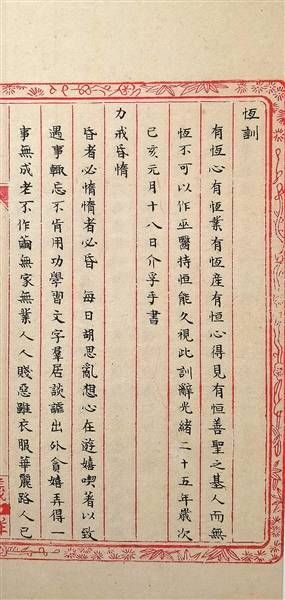 恆訓
有恆心有恆業有恆產有恆心得見有恒善聖之基人而無
恆不可以作巫醫特恒能久視此訓辭光緒二十五年歲次
己亥元月十八日介孚手書
力戒昏惰
昏者必惰惰者必昏 每日胡思亂想心在遊嬉喫着以致
遇事輒忘不肯用功學習文字羣居談謳出外貪嬉弄得一
事無成老不作繭無家無業人人賤惡雖衣服華麗路人已